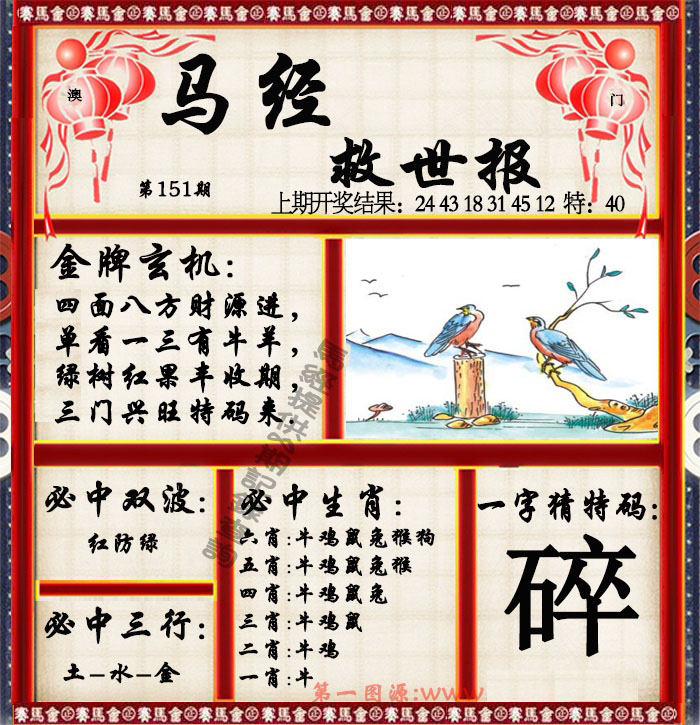 澳
门
马经
救世报
第151期
上期开奖结果：24 43 18 31 45 12 特：40
金牌玄机：
四面八方财源进，
单看一三有牛羊，
绿树红果丰收期，
三门兴旺特码来．
必中双波：
红防绿
必中三行：
土-水-金
必中生肖：
六肖：牛鸡鼠兔猴狗
五肖：牛鸡鼠兔猴
四肖：牛鸡鼠兔
三肖：牛鸡鼠
二肖：牛鸡
一肖：牛
一字猜特码：
碎
第一图源：www